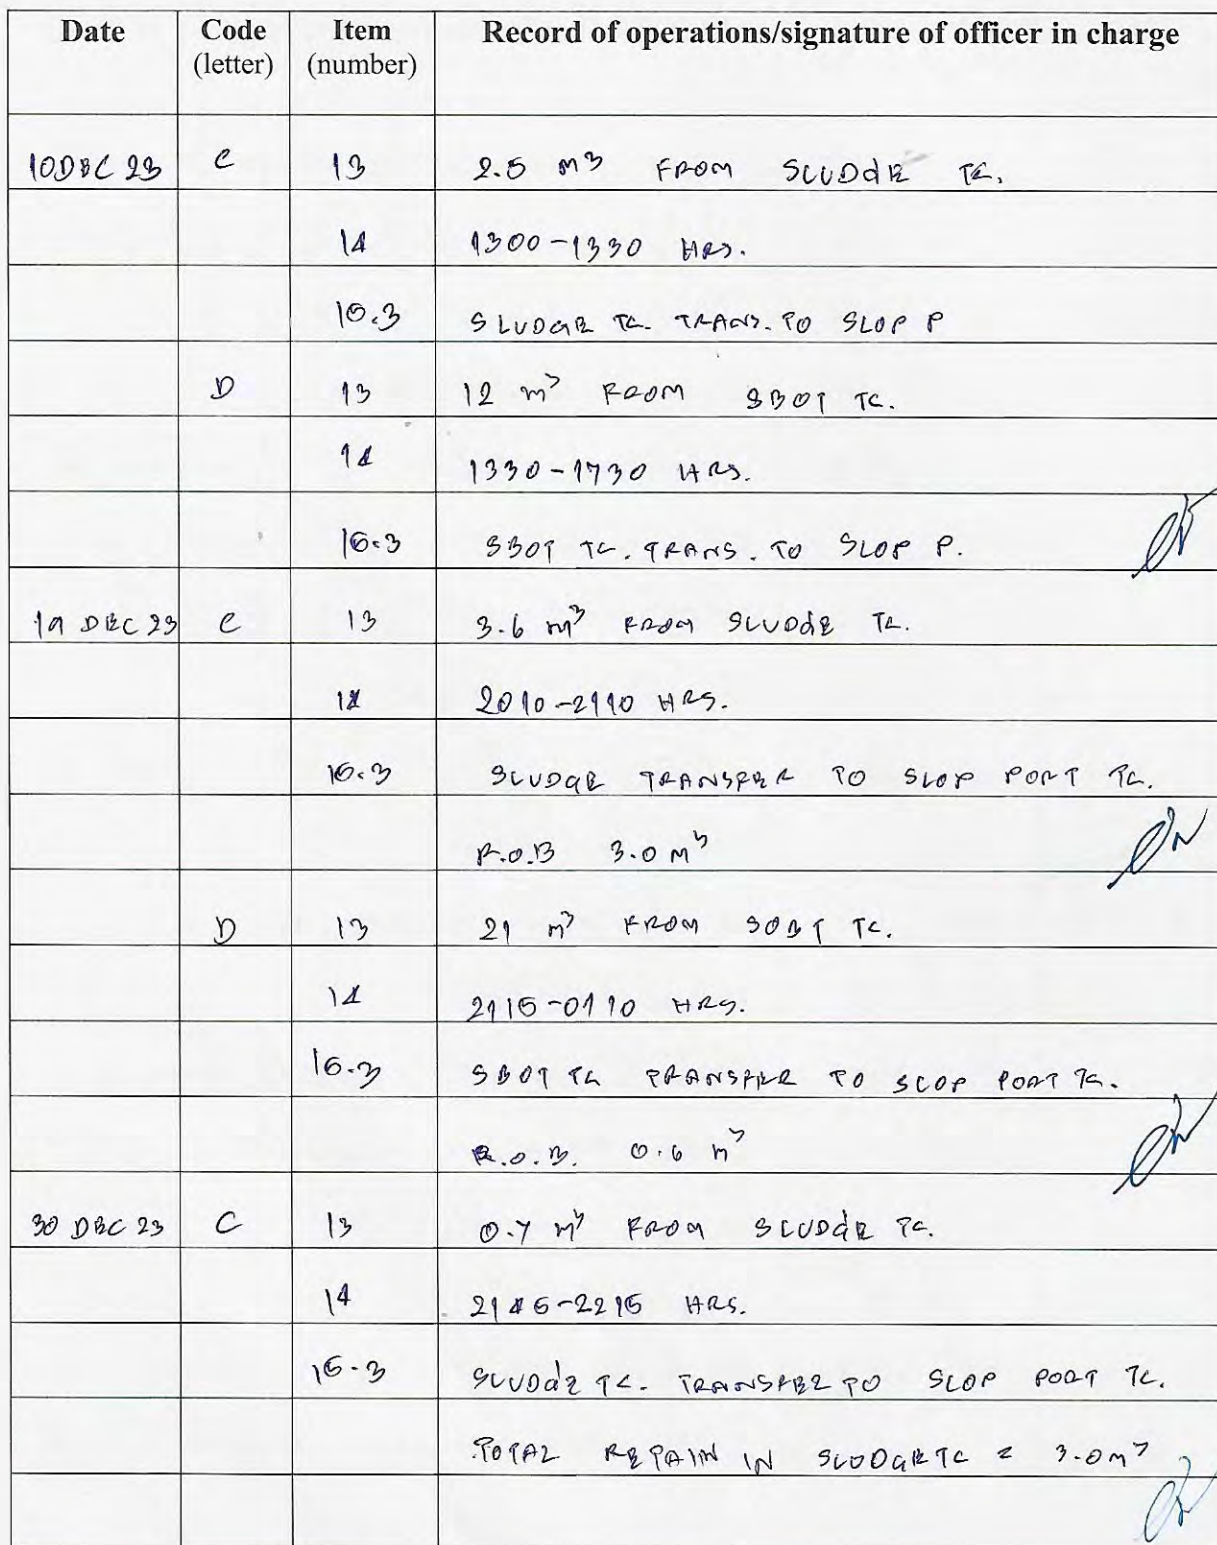 Date Code Item Record of operations/signature of officer in charge
(letter) (number)
10 DEC 23 C 13 2.5 m³ FROM SLUDGE TK.
14 1300-1330 HRS.
15.3 SLUDGE TK. TRANS. TO SLOP P
D 13 12 m³ FROM SBOT TK.
14 1330-1730 HRS.
15.3 SBOT TK. TRANS. TO SLOP P.
19 DEC 23 C 13 3.6 m³ FROM SLUDGE TK.
14 2010-2110 HRS.
15.3 SLUDGE TRANSFER TO SLOP PORT TK.
R.O.B 3.0 m³
D 13 21 m³ FROM SOBT TK.
14 2115-0110 HRS.
15.3 SBOT TK TRANSFER TO SLOP PORT TK.
R.O.B. 0.6 m³
30 DEC 23 C 13 0.7 m³ FROM SLUDGE TK.
14 2145-2215 HRS.
15.3 SLUDGE TK. TRANSFER TO SLOP PORT TK.
TOTAL RETAIN IN SLUDGE TK = 3.0 m³